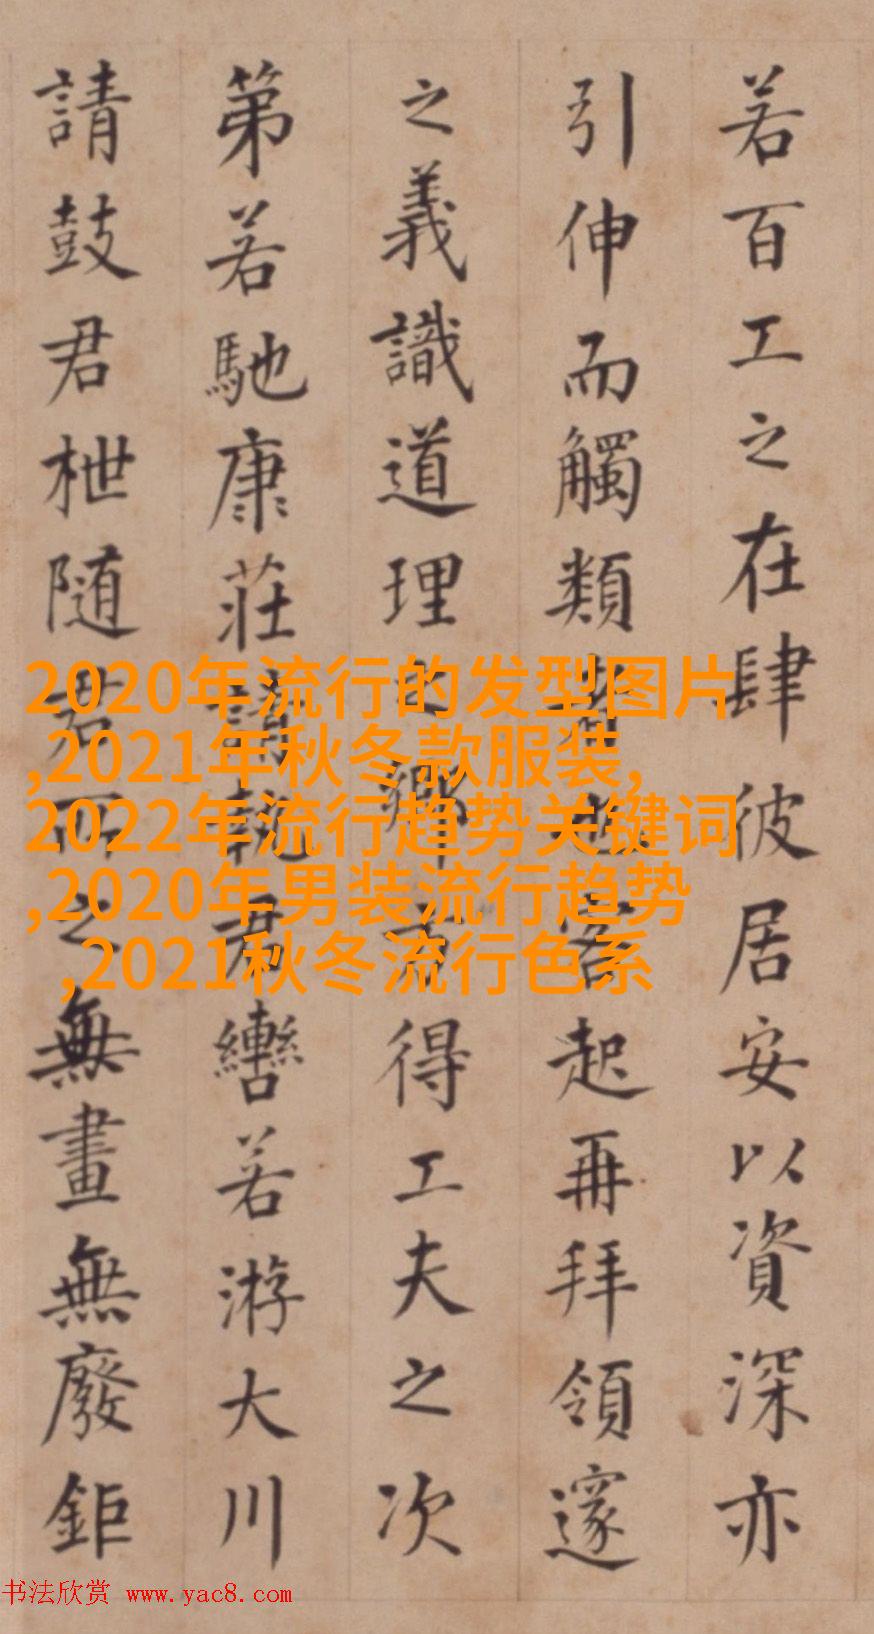 若百工之在肆彼居安以資深亦
引伸而觸類者也客起再拜領邃
之義識道理之鄉方得工夫之次
第若馳康莊請執君轡若游大川
請鼓君枻随君所之無畫無廢鉅
2020年流行的发型图片
,2021年秋冬款服装,
2022年流行趋势关键词
,2020年男装流行趋势
,2021秋冬流行色系
书法欣赏 www.yac8.com